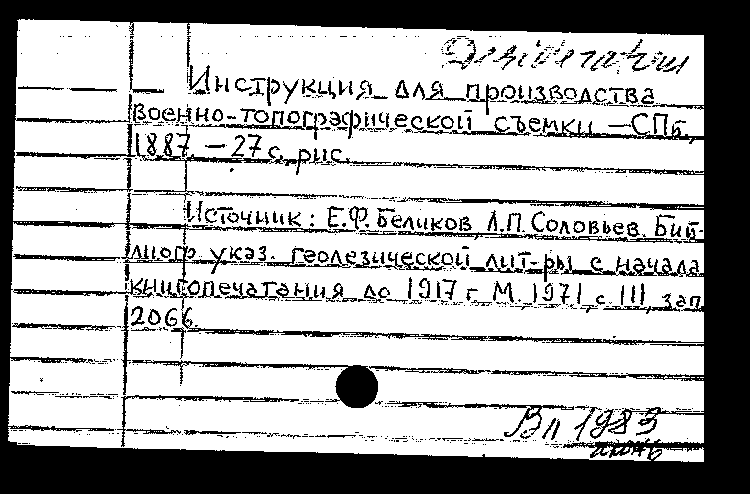 Desideratum
Инструкция для производства
военно-топографической съемки —СПб.,
1887. — 27 с., рис.
Источник: Е.Ф. Беликов, Л.П. Соловьев. Биб-
лиогр. указ. геодезической лит-ры с начала
книгопечатания до 1917 г. М., 1971, с. 111, зап.
2066.
Вп 1983